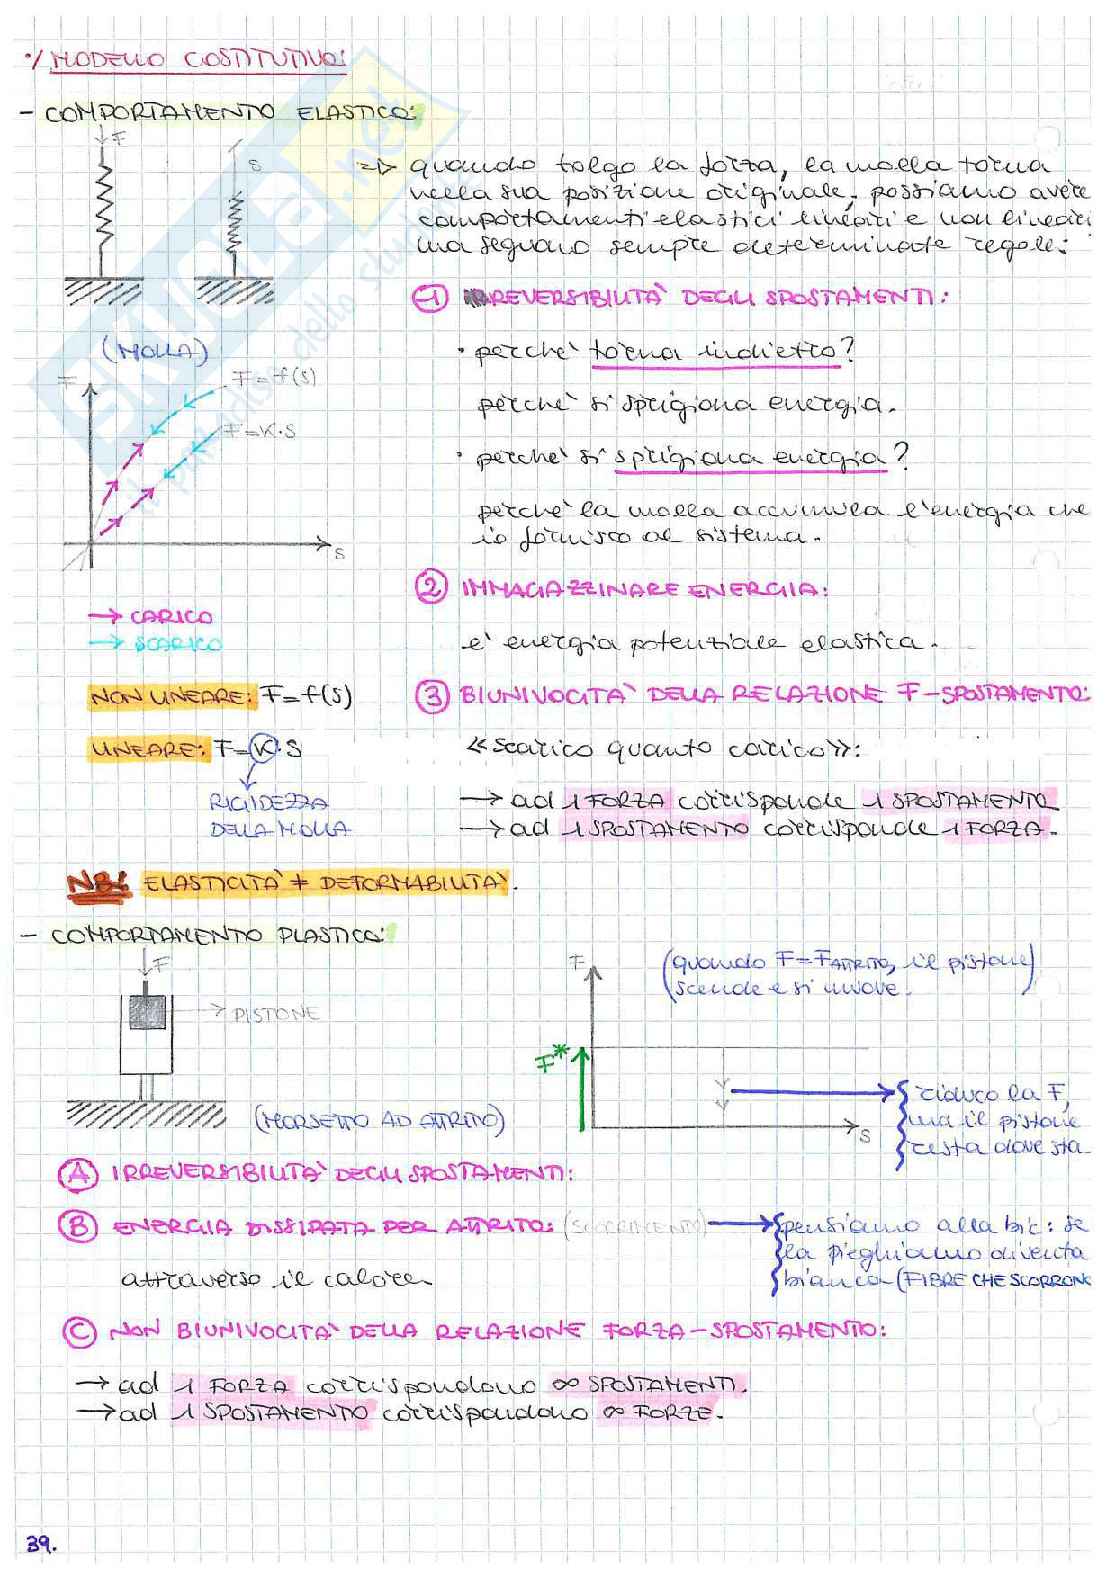 ·/ MODELLO COSTITUTIVO:
- COMPORTAMENTO ELASTICO:
F
S
=> quando tolgo la forza, la molla torna
nella sua posizione originale, possiamo avere
comportamenti elastici lineari e non lineari
ma seguono sempre determinate regole:
(MOLLA)
F
F=f(s)
F=K·S
S
→ CARICO
→ SCARICO
NON LINEARE: F=f(s)
LINEARE: F=K·S
RIGIDEZZA
DELLA MOLLA
① REVERSIBILITÀ DEGLI SPOSTAMENTI:
· perché torna indietro?
perché si sprigiona energia.
· perché si sprigiona energia?
perché la molla accumula l'energia che
io fornisco al sistema.
② IMMAGAZZINARE ENERGIA:
è energia potenziale elastica.
③ BIUNIVOCITÀ DELLA RELAZIONE F-SPOSTAMENTO:
«scarico quanto carico»:
→ ad 1 FORZA corrisponde 1 SPOSTAMENTO
→ ad 1 SPOSTAMENTO corrisponde 1 FORZA.
NB: ELASTICITÀ ≠ DEFORMABILITÀ.
- COMPORTAMENTO PLASTICO:
F
→ PISTONE
(MORSETTO AD ATTRITO)
F
(quando F=FATTRITO, il pistone)
(scende e si muove.
F*
S
riduco la F,
ma il pistone
resta dove sta.
Ⓐ IRREVERSIBILITÀ DEGLI SPOSTAMENTI:
Ⓑ ENERGIA DISSIPATA PER ATTRITO: (SCORRIMENTO) → pensiamo alla bic: se
la pieghiamo diventa
bianca (FIBRE CHE SCORRONO
attraverso il calore
Ⓒ NON BIUNIVOCITÀ DELLA RELAZIONE FORZA-SPOSTAMENTO:
→ ad 1 FORZA corrispondono ∞ SPOSTAMENTI.
→ ad 1 SPOSTAMENTO corrispondono ∞ FORZE.
39.